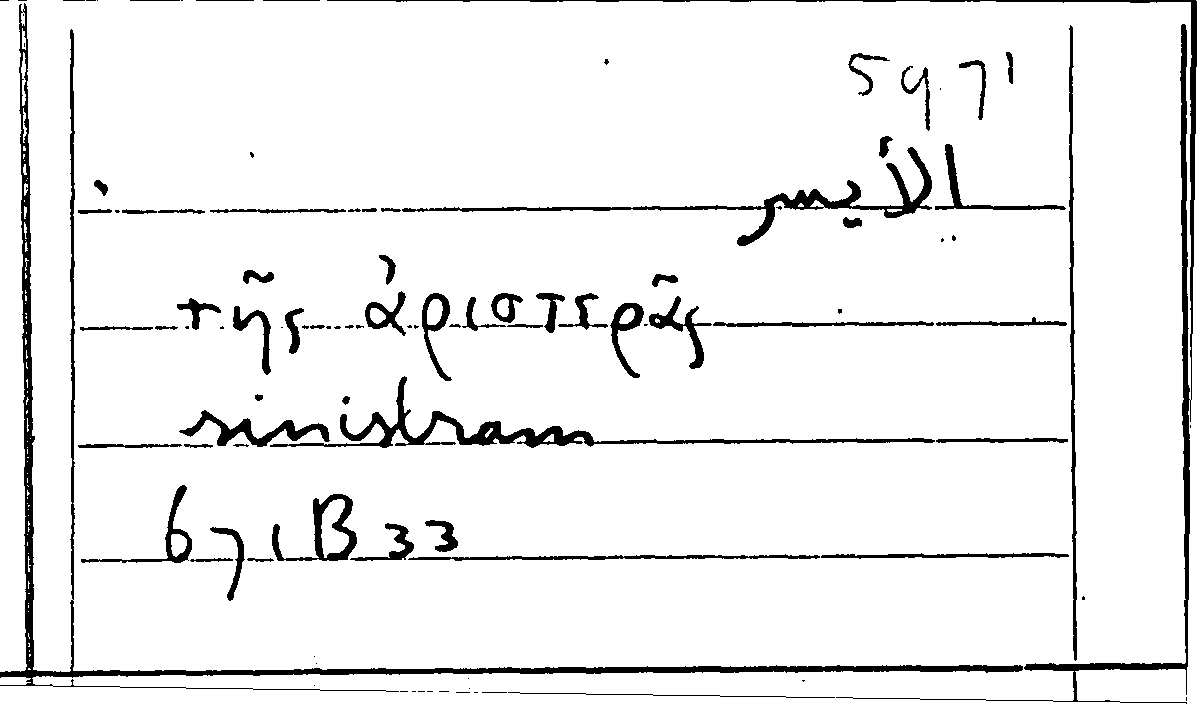 5971
الأيسر
τῆς ἀριστερᾶς
sinistram
671B33